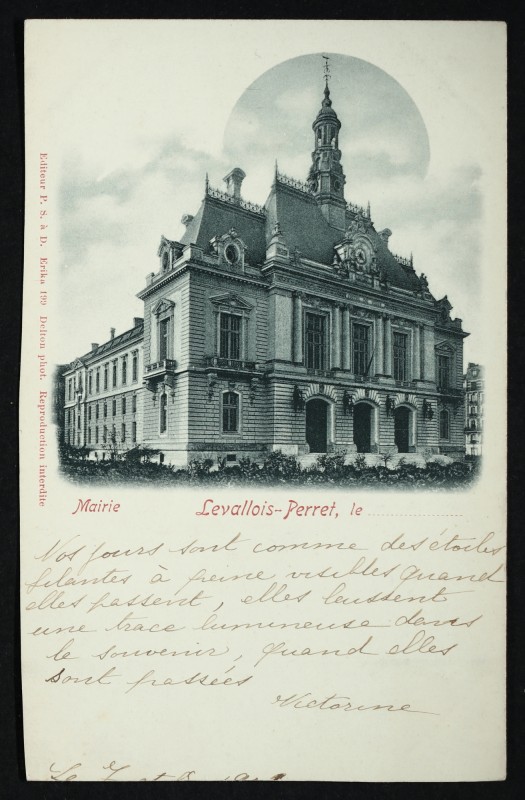 Editeur P. S. à D. Erika 199 Delton phot. Reproduction interdite
Mairie
Levallois-Perret, le
Nos jours sont comme des étoiles
filantes à peine visibles quand
elles passent, elles laussent
une trace lumineuse dans
le souvenir, quand elles
sont passées
Victorine
Le 7